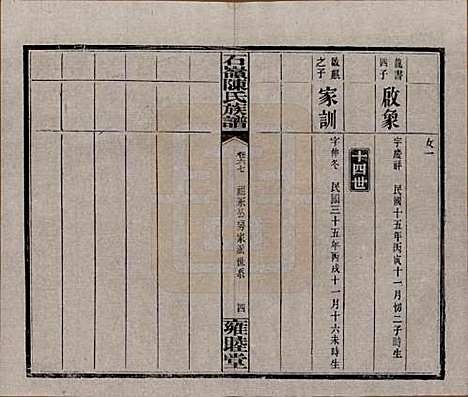 女一
龍書四子
啟象
字慶祥 民國十五年丙寅十一月初二子時生
十四世
啟麒之子
家訓
字仲冬 民國三十五年丙戌十一月十六未時生
石嶺陳氏族譜
卷六七
四
雍睦堂